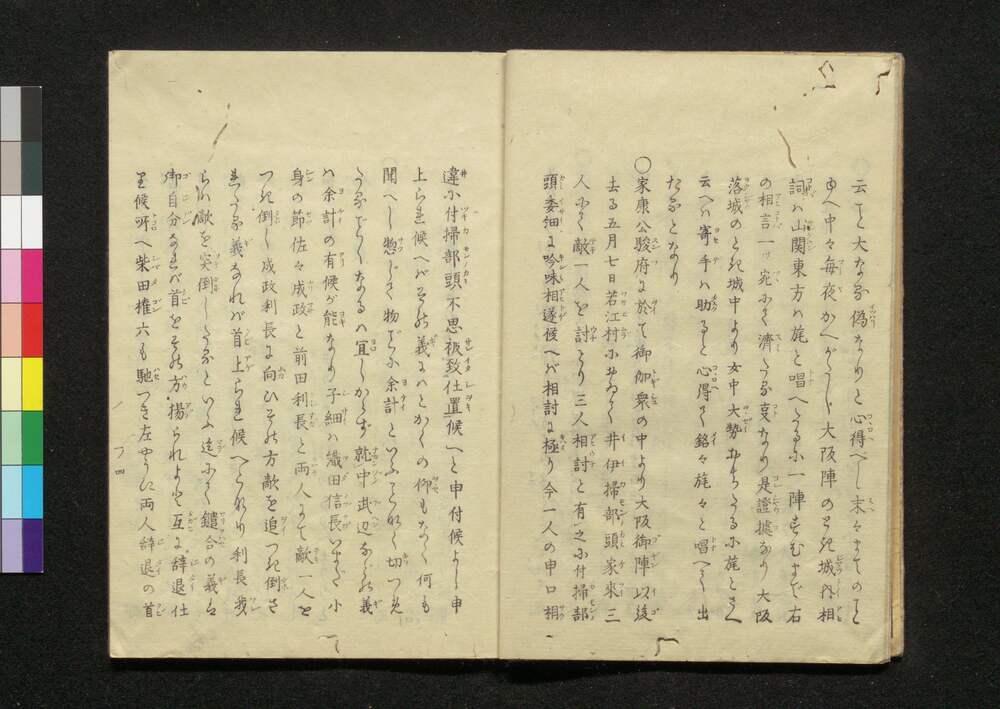 云こと大なる偽なりと心得べし末々までのこと
ゆへ中々毎夜かへがたし大阪陣のとき城内相
詞ハ山関東方ハ旄と唱へたるに一陣すむまで右
の相言一ツ宛にて済たる事なり是證拠なり大阪
落城のとき城中より女中大勢おちたるに旄とさへ
云へハ寄手ハ助ると心得て銘々旄々と唱へて出
たるとなり
○家康公駿府に於て御伽衆の中より大阪御陣以後
去る五月七日若江村において井伊掃部頭家来三
人にて敵一人を討とり三人相討と有之に付掃部
頭委細に吟味相遂候へバ相討に極り今一人の申口相
違に付掃部頭不思被致仕置候へと申付候よし申
上られ候へバその義にハとかくの仰もなく何も
聞へし惣じて物ごとに余計といふこれなく切つめ
たるごとくなるハ宜しからず就中武辺などの義
ハ余計の有候が能なり子細ハ織田信長いまだ小
身の節佐々成政と前田利長と両人にて敵一人を
つき倒し成政利長に向ひその方敵を追つき倒さ
れたる義なれバ首上られ候へとあり利長我
らハ敵を突倒したるといふ迄にて鑓合の義は
御自分なれバ首をその方揚られよと互に辞退仕
り候呀へ柴田権六も馳つき左やうに両人辞退の首